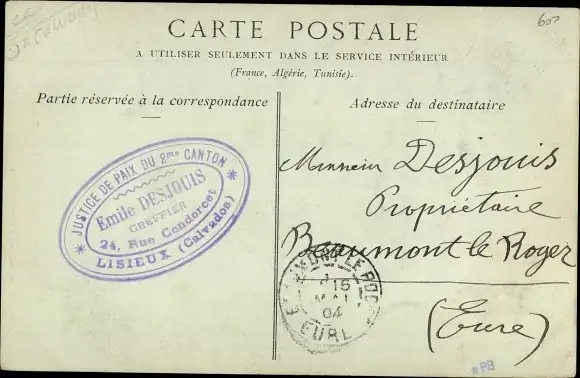 600
CARTE POSTALE
A UTILISER SEULEMENT DANS LE SERVICE INTÉRIEUR
(France, Algérie, Tunisie).
Partie réservée à la correspondance
Adresse du destinataire
JUSTICE DE PAIX DU 2me CANTON
Emile DESJOUIS
GREFFIER
24, Rue Condorcet
LISIEUX (Calvados)
Monsieur Desjouis
Propriétaire
Beaumont le Roger
(Eure)
BEAUMONT LE ROGER
15
MAI
04
EURE
*PB